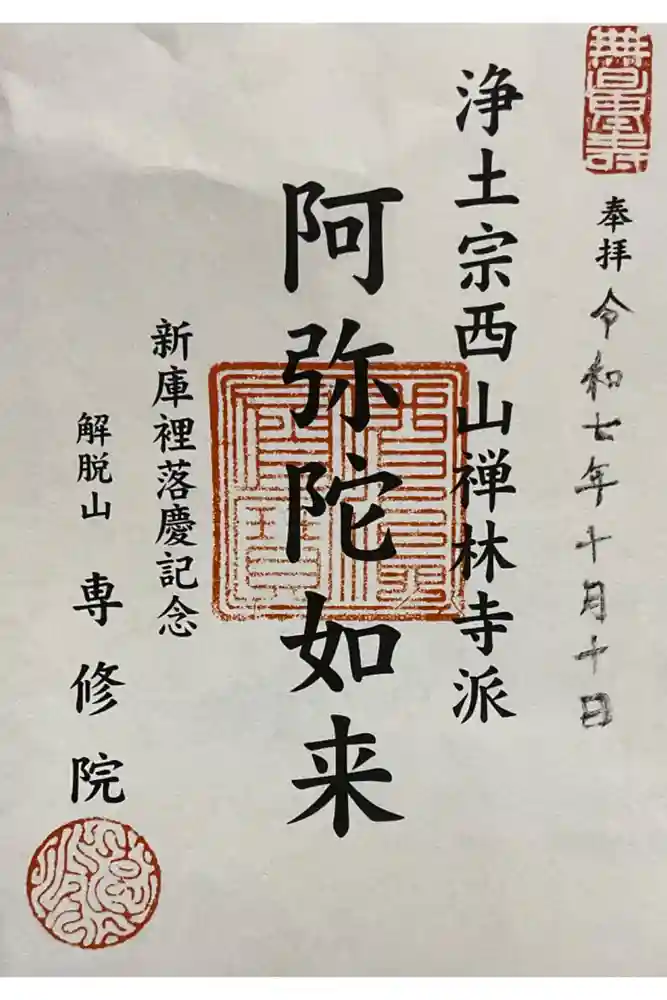 奉拝 令和七年十月十日
浄土宗西山禅林寺派
阿弥陀如来
新庫裡落慶記念
解脱山 専修院